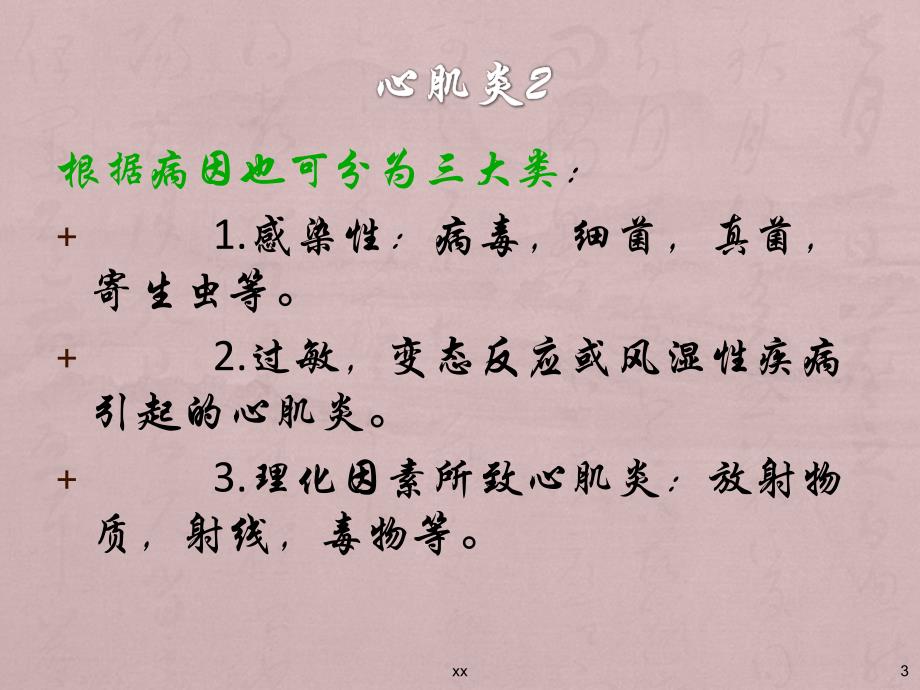 心肌炎2
根据病因也可分为三大类：
+ 1.感染性：病毒，细菌，真菌，
寄生虫等。
+ 2.过敏，变态反应或风湿性疾病
引起的心肌炎。
+ 3.理化因素所致心肌炎：放射物
质，射线，毒物等。
xx
3